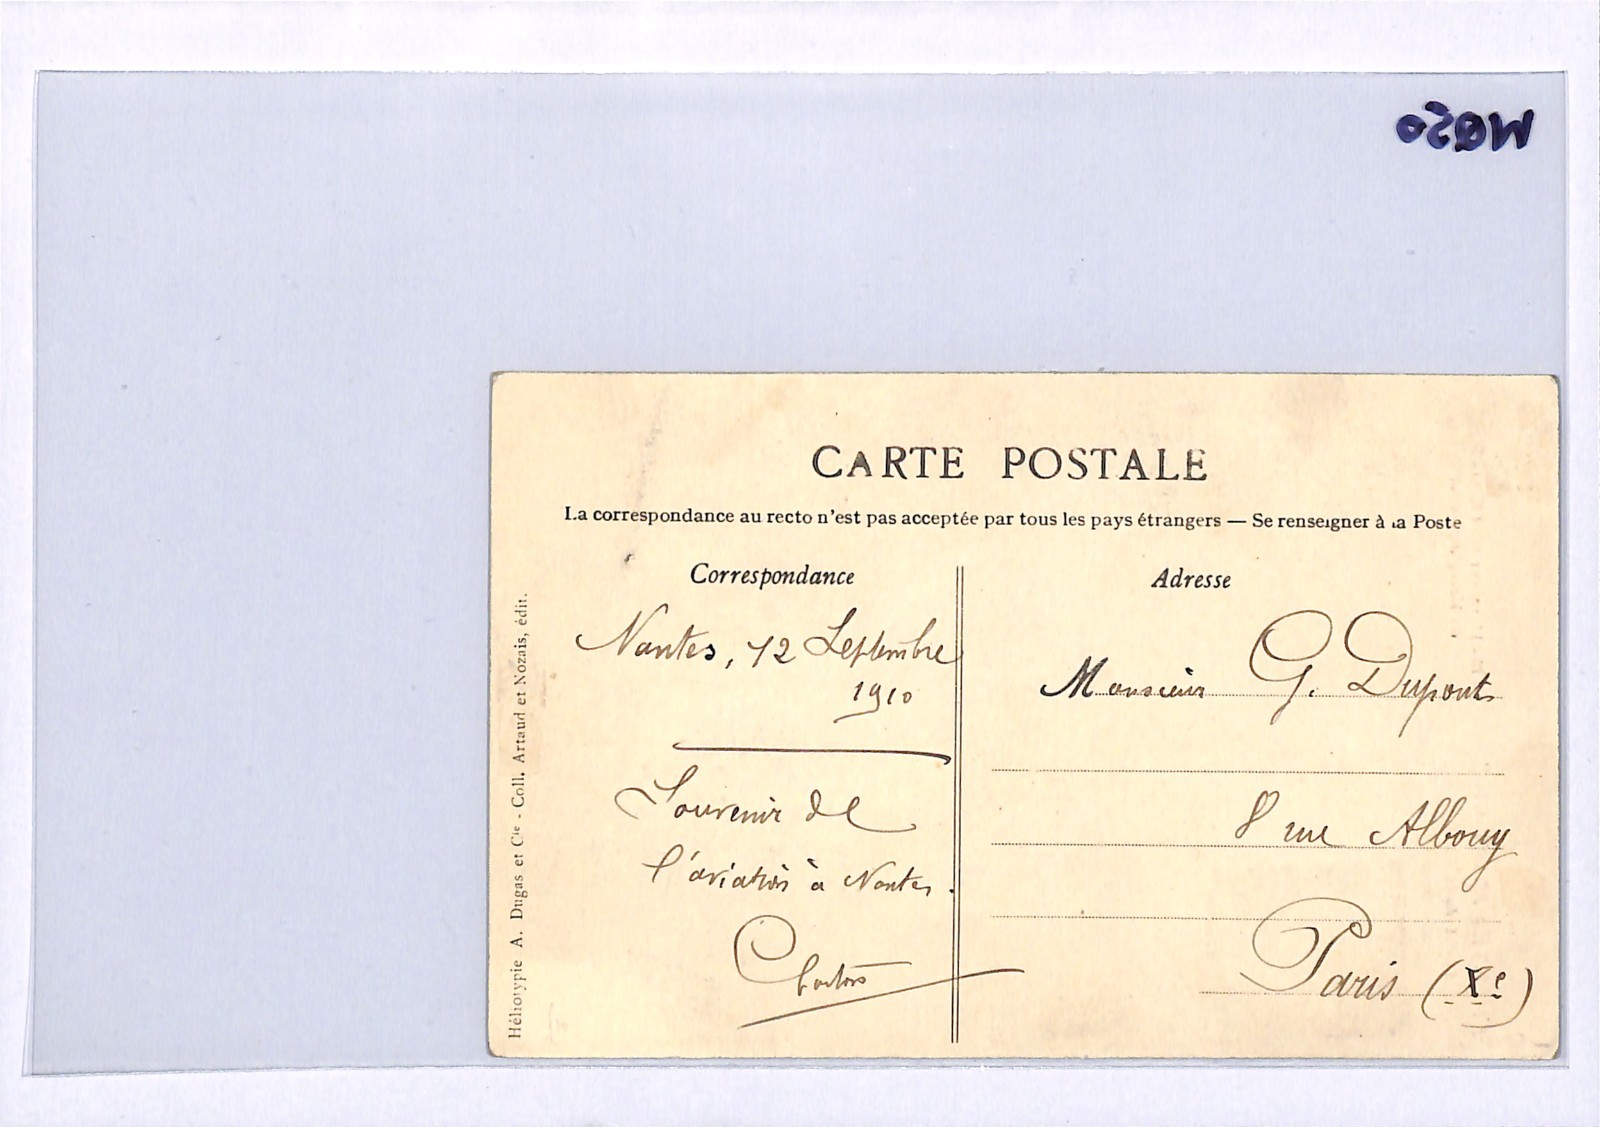 CARTE POSTALE
La correspondance au recto n'est pas acceptée par tous les pays étrangers — Se renseigner à la Poste
Correspondance
Nantes, 12 Septembre
1910
Souvenir de
l'aviation à Nantes.
Adresse
Monsieur G. Dupont
8 rue Albouy
Paris (Xe)
Héliotypie A. Dugas et Cie - Coll. Artaud et Nozais, édit.